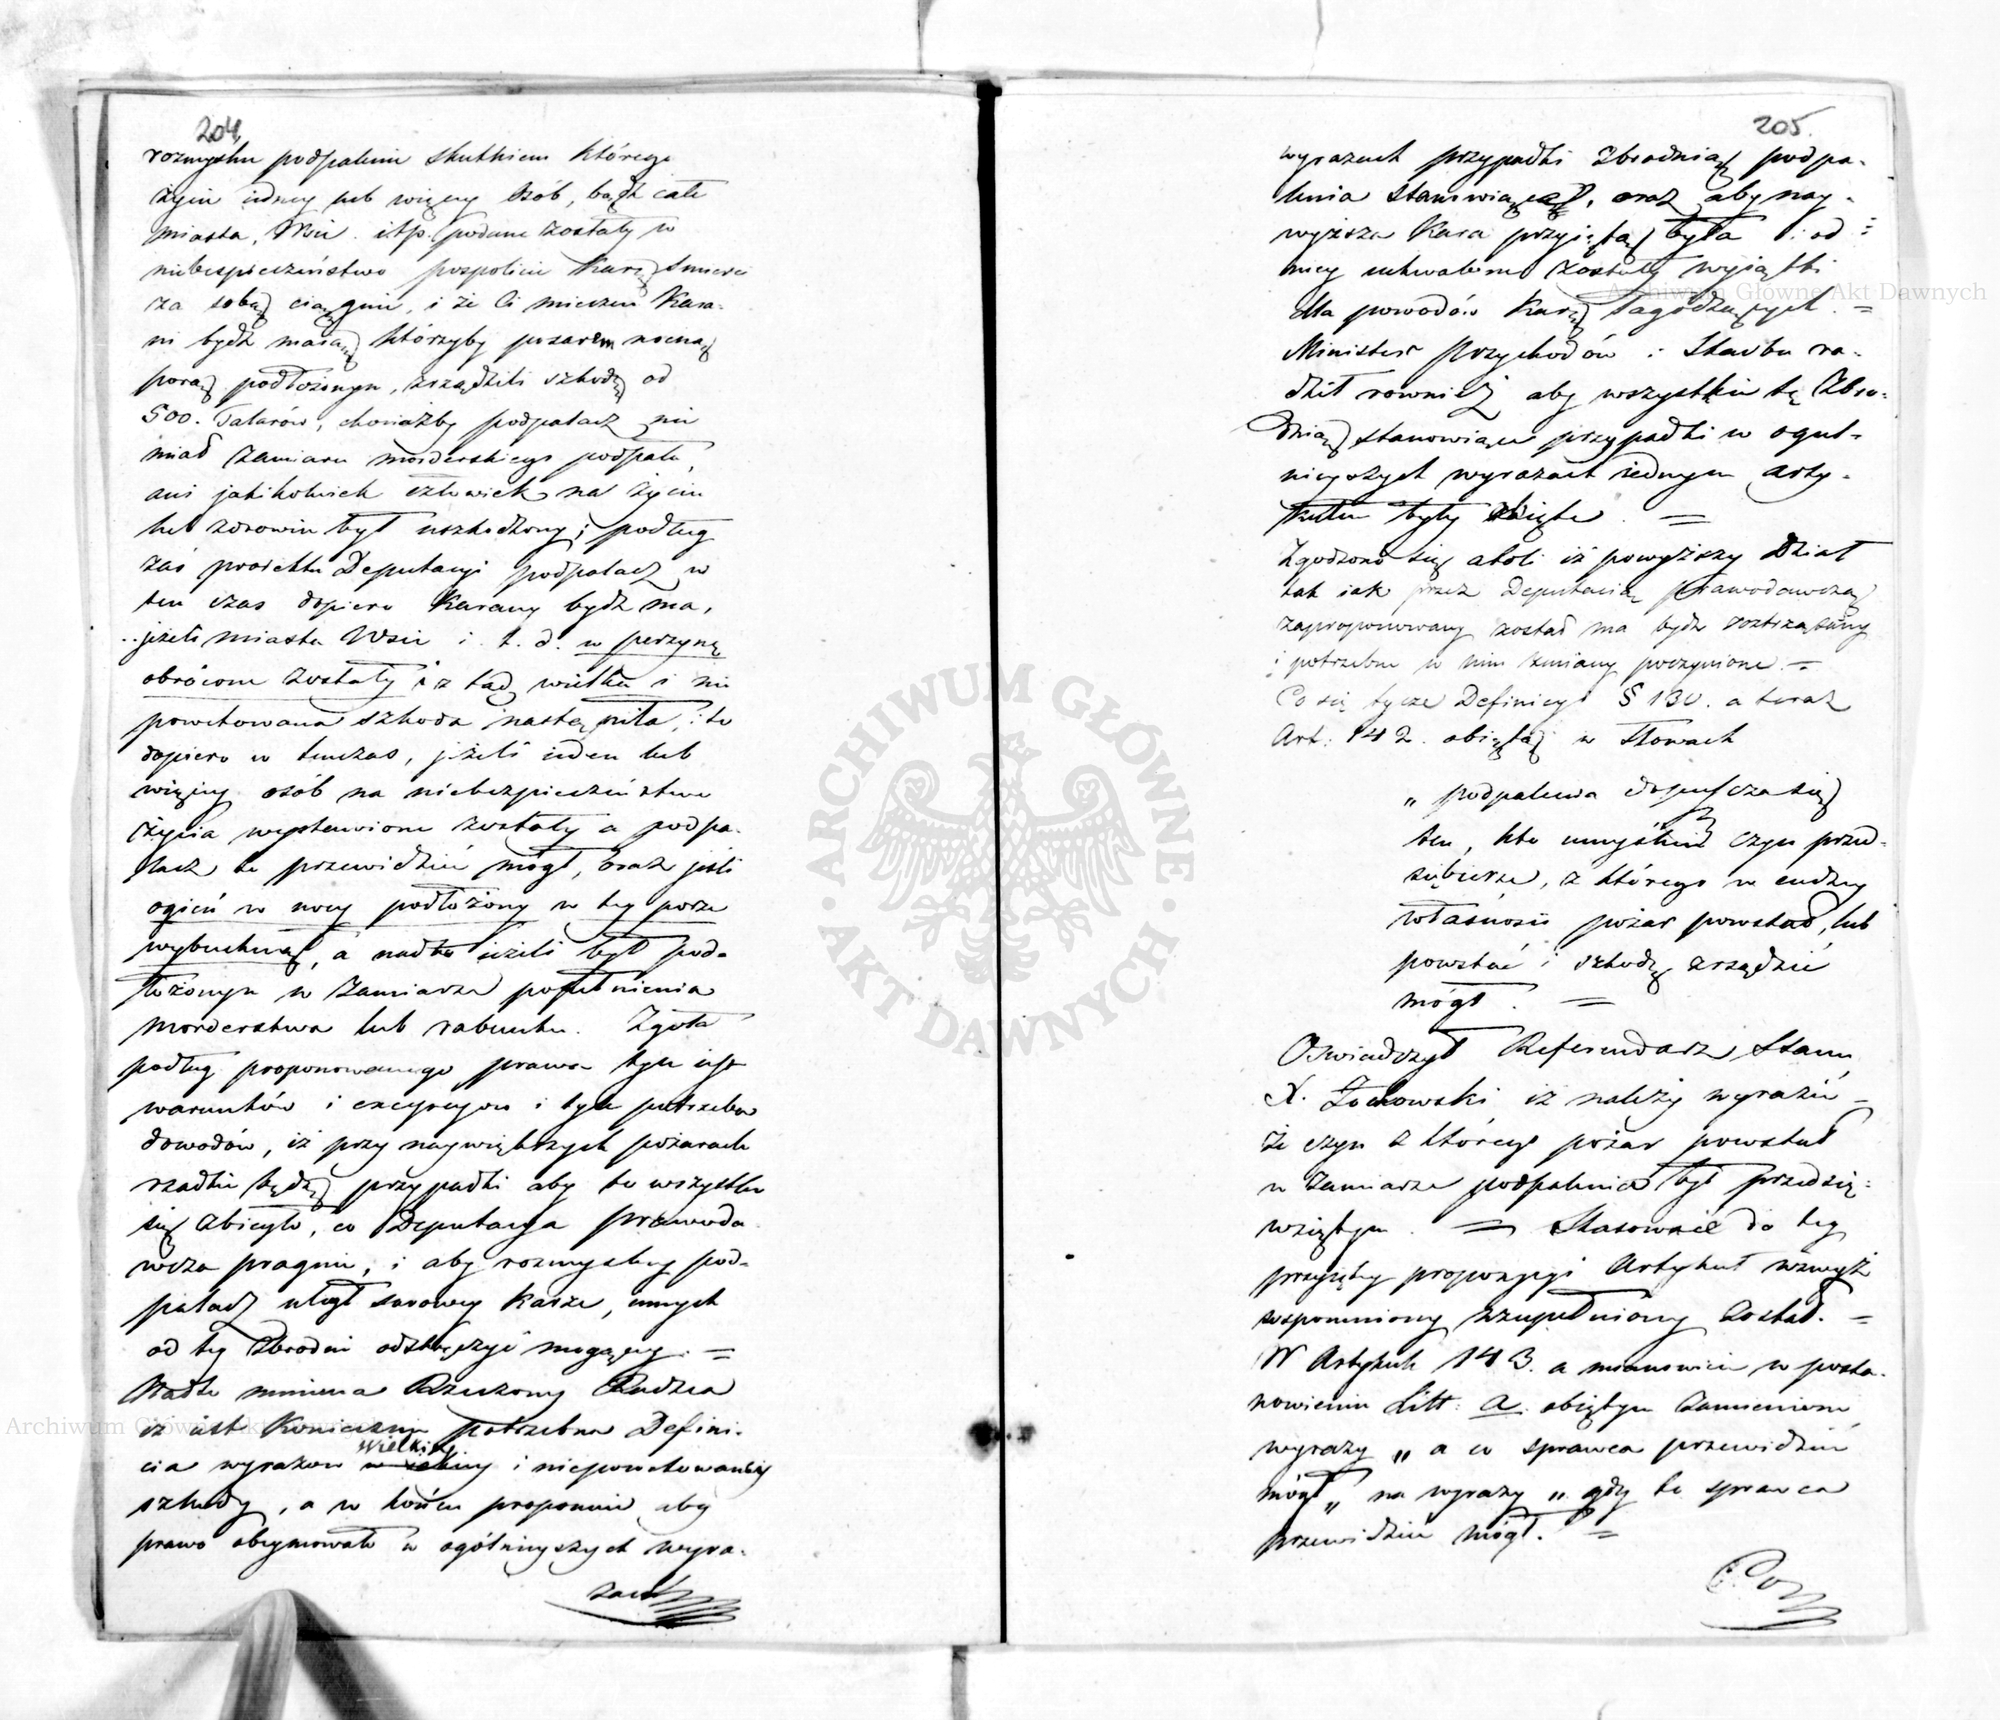 204
rozmyslne podpalenie skutkiem którego
życie iedney lub więcey osób, bądź całe
miasta, Wsie itp. podane zostały w
niebespieczeństwo pospolicie Karę Smierci
za sobą ciągnie, i że Ci mieczem Kara-
ni bydź maią którzyby pożarem nocną
porą podłożonym, zrządzili szkodę od
500. Talarów, chociażby podpalacz nie
miał zamiaru morderskiego podpału,
ani jakikolwiek człowiek na życiu
lub zdrowiu był uszkodzony; podług
zaś proiektu Deputacyi podpalacz w
ten czas dopiero Karany bydź ma,
jeżeli miasta Wsie i. t. d. w perzynę
obrócone zostały i z tąd wielka i nie
powetowana szkoda nastąpiła, i to
dopiero w tenczas, jeżeli ieden lub
więcey osób na niebezpieczeństwo
życia wystawione zostały a podpa-
lacz to przewidzieć mógł, oraz jeśli
ogień w nocy podłożony w tey porze
wybuchnął, a nadto ieżeli był pod-
łożonym w zamiarze popełnienia
morderstwa lub rabunku. Zgoła
podług proponowanego prawa tyle iest
warunków i excepcyow i tyle potrzeba
dowodów, iż przy naywiększych pożarach
rzadkie będą przypadki aby to wszystko
się zbiegło, co Deputacya prawoda-
wcza pragnie, i aby rozmyslny pod-
palacz uległ surowey Karze, innych
od tey Zbrodni odstręczyć mogącey. =
Nadto mniema Rzeczony Radzca
iż iest Koniecznie potrzebna Defini-
cia wyrazow Wielkiey i niepowetowaney
szkody, a w końcu proponuie aby
prawo obeymowało w ogólnieyszych wyra-
zach
205.
wyrazach przypadki Zbrodnią podpa-
lenia stanowiące, oraz aby nay-
wyższa Kara przyiętą była i od
niey uchwalone zostały wyiątki
dla powodów Karę łagodzących. =
Minister Przychodów i Skarbu ra-
dził rownież aby wszystkie tę Zbro-
dnią stanowiące przypadki w ogul-
nieyszych wyrazach iednym arty-
kułem były obięte. =
Zgodzono się atoli iż powyższy Dział
tak iak przez Deputacią prawodawczą
zaproponowany został ma bydź roztrząsany
i potrzebne w nim zmiany poczynione. =
Co się tycze Definicyi § 130. a teraz
Art: 142. obiętéj w słowach
„ podpalenia dopuszcza się
ten, kto umyślnie czyn przed-
siębierze, z którego w cudzey
własności pożar powstał, lub
powstać i szkodę zrządzić
mógł. =
Oswiadczył Referendarz Stanu
X. Żochowski iż należy wyrazić
że czyn z którego pożar powstał
w zamiarze podpalenia był przedsię-
wziętym. = Stosownie do tey
przyiętey propozycyi Artykuł wzwyż
wspomniony uzupełniony został. =
W Artykule 143. a mianowicie w posta-
nowieniu Litt: a. obiętym zamieniono
wyrazy „ a co sprawca przewidzieć
mógł „ na wyrazy „ gdy to sprawca
przewidzieć mógł. =
Co
ARCHIWUM GŁÓWNE AKT DAWNYCH
Archiwum Główne Akt Dawnych
Archiwum Główne Akt Dawnych